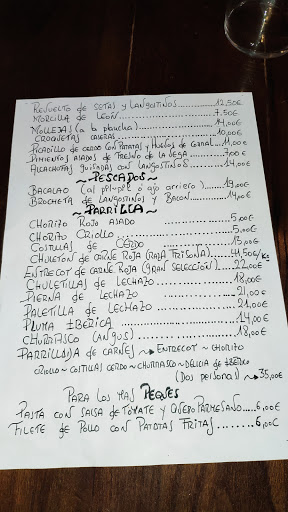 REVUELTO DE SETAS Y LANGOSTINOS............12,50€
MORCILLA DE LEÓN...............7.50€
MOLLEJAS (a la plancha)...............14,00€
CROQUETAS CASERAS...............10,00€
PICADILLO DE CERDO CON PATATAS Y HUEVOS DE CORRAL...11,00€
PIMIENTOS ASADOS DE FRESNO DE LA VEGA.......7,00€
ALCACHOFAS GUISADAS CON LANGOSTINOS.......14,00€
~ PESCADOS ~
BACALAO (al pil-pil o ajo arriero)..........19,00€
BROCHETA DE LANGOSTINOS Y BACON.........14,00€
~ PARRILLA ~
CHORIZO ROJO ASADO...............5,00€
CHORIZO CRIOLLO...............5,00€
COSTILLAS DE CERDO...............15,00€
CHULETÓN DE CARNE ROJA (RAZA FRISONA)......41,50€/Kg
ENTRECOT DE CARNE ROJA (GRAN SELECCIÓN)......22,00€
CHULETILLAS DE LECHAZO...............18,00€
PIERNA DE LECHAZO...............21,00€
PALETILLA DE LECHAZO...............21,00€
PLUMA IBÉRICA...............14,00€
CHURRASCO (ANGUS)...............18,00€
PARRILLADA DE CARNES → ENTRECOT ~ CHORIZO
CRIOLLO ~ COSTILLAS CERDO ~ CHURRASCO ~ DELICIA DE IBÉRICO
(Dos personas) → 35,00€
PARA LOS MAS PEQUES
PASTA CON SALSA DE TOMATE Y QUESO PARMESANO.....6,00€
FILETE DE POLLO CON PATATAS FRITAS.........6,00€